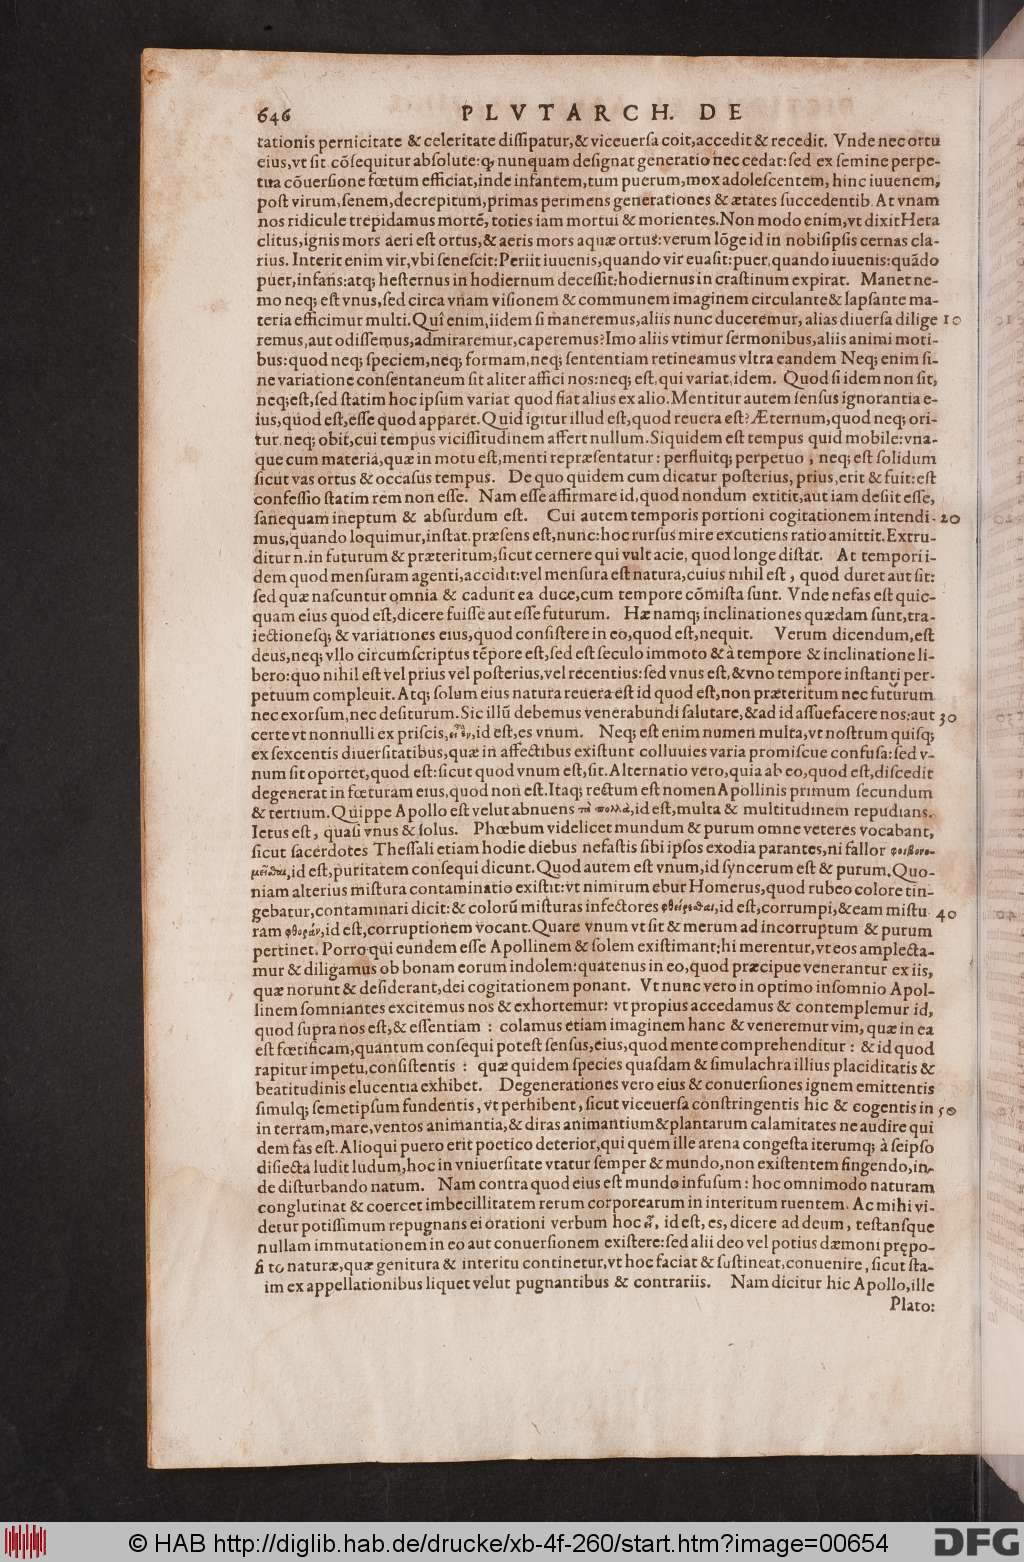 646 PLVTARCH. DE
tationis pernicitate & celeritate diſſipatur,& viceuerſa coit,accedit & recedit. Vnde nec ortu
eius,vt ſit cõſequitur abſolute:q, nunquam deſignat generatio nec cedat: ſed ex ſemine perpe-
tua cõuerſione fœtum efficiat,inde infantem,tum puerum,mox adoleſcentem, hinc iuuenem,
poſt virum,ſenem,decrepitum,primas perimens generationes & ætates ſuccedentib. At vnam
nos ridicule trepidamus mortẽ, toties iam mortui & morientes.Non modo enim,vt dixit Hera
clitus,ignis mors aeri eſt ortus,& aeris mors aquæ ortus:verum lõge id in nobiſipſis cernas cla-
rius. Interit enim vir,vbi ſeneſcit:Periit iuuenis,quando vir euaſit:puer,quando iuuenis:quãdo
puer,infans:atq; heſternus in hodiernum deceſſit:hodiernus in craſtinum expirat. Manet ne-
mo neq; eſt vnus,ſed circa vnam viſionem & communem imaginem circulante& lapſante ma-
teria efficimur multi.Quî enim,iidem ſi maneremus,aliis nunc duceremur, alias diuerſa dilige 10
remus,aut odiſſemus,admiraremur,caperemus?Imo aliis vtimur ſermonibus,aliis animi moti-
bus:quod neq; ſpeciem,neq; formam,neq; ſententiam retineamus vltra eandem Neq; enim ſi-
ne variatione conſentaneum ſit aliter affici nos:neq; eſt,qui variat,idem. Quod ſi idem non ſit,
neq;eſt,ſed ſtatim hoc ipſum variat quod fiat alius ex alio.Mentitur autem ſenſus ignorantia e-
ius,quod eſt,eſſe quod apparet.Quid igitur illud eſt,quod reuera eſt?Æternum,quod neq; ori-
tur neq; obit,cui tempus viciſſitudinem affert nullum.Siquidem eſt tempus quid mobile:vna-
que cum materia,quæ in motu eſt,menti repræſentatur: perfluitq; perpetuo , neq; eſt ſolidum
ſicut vas ortus & occaſus tempus. De quo quidem cum dicatur poſterius, prius,erit & fuit:eſt
confeſſio ſtatim rem non eſſe. Nam eſſe affirmare id,quod nondum extitit,aut iam deſiit eſſe,
ſanequam ineptum & abſurdum eſt. Cui autem temporis portioni cogitationem intendi- 20
mus,quando loquimur,inſtat. præſens eſt,nunc:hoc rurſus mire excutiens ratio amittit.Extru-
ditur n.in futurum & præteritum,ſicut cernere qui vult acie, quod longe diſtat. At tempori i-
dem quod menſuram agenti,accidit:vel menſura eſt natura,cuius nihil eſt , quod duret aut ſit:
ſed quæ naſcuntur omnia & cadunt ea duce,cum tempore cõmiſta ſunt. Vnde nefas eſt quic-
quam eius quod eſt,dicere fuiſſe aut eſſe futurum. Hæ namq; inclinationes quædam ſunt,tra-
iectionesq; & variationes eius,quod conſiſtere in eo,quod eſt,nequit. Verum dicendum,eſt
deus,neq; vllo circumſcriptus tẽpore eſt,ſed eſt ſeculo immoto & à tempore & inclinatione li-
bero:quo nihil eſt vel prius vel poſterius,vel recentius:ſed vnus eſt,&vno tempore inſtanti per-
petuum compleuit. Atq; ſolum eius natura reuera eſt id quod eſt,non præteritum nec futurum
nec exorſum,nec deſiturum.Sic illũ debemus venerabundi ſalutare,&ad id aſſuefacere nos:aut 30
certe vt nonnulli ex priſcis,εἶ ἕν,id eſt,es vnum. Neq; eſt enim numen multa,vt noſtrum quiſq;
ex ſexcentis diuerſitatibus,quæ in affectibus exiſtunt colluuies varia promiſcue confuſa:ſed v-
num ſit oportet,quod eſt:ſicut quod vnum eſt,ſit.Alternatio vero,quia ab eo,quod eſt,diſcedit
degenerat in fœturam eius,quod non eſt.Itaq; rectum eſt nomen Apollinis primum ſecundum
& tertium.Quippe Apollo eſt velut abnuens τὰ πολλὰ,id eſt,multa & multitudinem repudians.
Ietus eſt, quaſi vnus & ſolus. Phœbum videlicet mundum & purum omne veteres vocabant,
ſicut ſacerdotes Theſſali etiam hodie diebus nefaſtis ſibi ipſos exodia parantes,ni fallor φοιβονο-
μεῖσθαι,id eſt,puritatem conſequi dicunt.Quod autem eſt vnum,id ſyncerum eſt & purum.Quo-
niam alterius miſtura contaminatio exiſtit:vt nimirum ebur Homerus,quod rubeo colore tin-
gebatur,contaminari dicit:& colorũ miſturas infectores φθείρεσθαι,id eſt,corrumpi,&eam miſtu 40
ram φθορὰν,id eſt,corruptionem vocant.Quare vnum vt ſit & merum ad incorruptum & purum
pertinet. Porro qui eundem eſſe Apollinem & ſolem exiſtimant:hi merentur,vt eos amplecta-
mur & diligamus ob bonam eorum indolem:quatenus in eo,quod præcipue venerantur ex iis,
quæ norunt & deſiderant,dei cogitationem ponant. Vt nunc vero in optimo inſomnio Apol-
linem ſomniantes excitemus nos & exhortemur: vt propius accedamus & contemplemur id,
quod ſupra nos eſt,& eſſentiam : colamus etiam imaginem hanc & veneremur vim, quæ in ea
eſt fœtificam,quantum conſequi poteſt ſenſus,eius,quod mente comprehenditur : & id quod
rapitur impetu,conſiſtentis : quæ quidem ſpecies quaſdam & ſimulachra illius placiditatis &
beatitudinis elucentia exhibet. Degenerationes vero eius & conuerſiones ignem emittentis
ſimulq; ſemetipſum fundentis, vt perhibent, ſicut viceuerſa conſtringentis hic & cogentis in 50
in terram,mare,ventos animantia,& diras animantium&plantarum calamitates ne audire qui
dem fas eſt.Alioqui puero erit poetico deterior,qui quem ille arena congeſta iterumq; à ſeipſo
diſiecta ludit ludum,hoc in vniuerſitate vtatur ſemper & mundo,non exiſtentem fingendo,in-
de diſturbando natum. Nam contra quod eius eſt mundo infuſum: hoc omnimodo naturam
conglutinat & coercet imbecillitatem rerum corporearum in interitum ruentem. Ac mihi vi-
detur potiſſimum repugnans ei orationi verbum hoc εἶ, id eſt, es, dicere ad deum, teſtanſque
nullam immutationem in eo aut conuerſionem exiſtere:ſed alii deo vel potius dæmoni prępo-
ſi to naturæ,quæ genitura & interitu continetur,vt hoc faciat & ſuſtineat,conuenire, ſicut ſta-
im ex appellationibus liquet velut pugnantibus & contrariis. Nam dicitur hic Apollo,ille
Plato:
© HAB http://diglib.hab.de/drucke/xb-4f-260/start.htm?image=00654
DFG